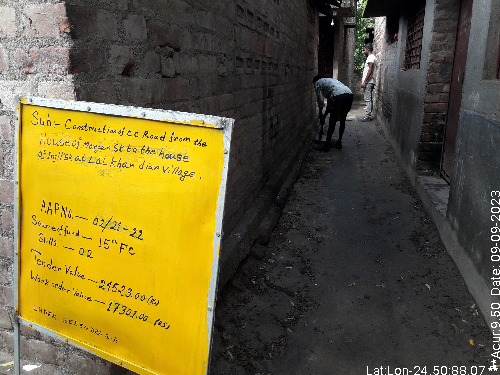 Sub:- Construction of C C Road from the
House of Sk to the house
of at Lal khan diar Village.
AAP No. — 02/21-22
Source of fund — 15th FC
Skills — 02
Tender Value — 24523.00 (Rs)
Work order Value — 17301.00 (Rs)
Lat:Lon-24.50:88.07
**Acur:9.50 Date:09-09-2023